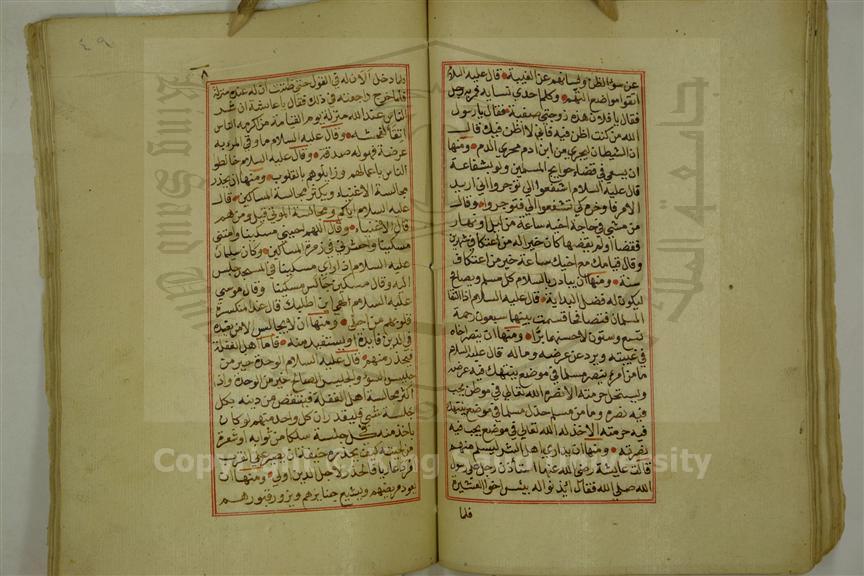 عن سوء الظن ولسانهم عن الغيبة قال عليه السلام
اتقوا مواضع التهم وكلم احدى نسايه فمر به رجل
فقال يا فلان هذه زوجتي صفية فقال يا رسول
الله من كنت اظن فيه فاني لا اظن فيك قال
ان الشيطان يجري من ابن ادم مجرى الدم ومنها
ان يسعى في قضاء حوايج المسلمين ولو بشفاعة
قال عليه السلام اشفعوا الي توجروا اني اريد
الامر فاوخره كي تشفعوا الي فتوجروا وقال
من مشى في حاجة اخيه ساعة من ليل او نهار
قضاها او لم يقضها كان خيرا له من اعتكاف شهرين
وقال قيامك مع اخيك ساعة خير من اعتكاف
سنة ومنها ان يبادر بالسلام كل مسلم ويصافح
ليكون له فضل البداية قال عليه السلام اذا التقا
المسلمان فتصافحا قسمت بينهما سبعون رحمة
تسع وستون لاحسنهما برا ومنها ان ينصر اخاه
في غيبته ويرد عن عرضه وماله قال عليه السلام
ما من امرء ينصر مسلما في موضع ينتهك فيه عرضه
ويستحل حرمته الا نصره الله تعالى في موطن يحب
فيه نصره وما من مسلم خذل مسلما في موضع ينتهك
فيه حرمته الا خذله الله تعالى في موضع يحب فيه
نصرته ومنها ان يداري اهل الشر ليسلم منهم
قالت عايشة رضي الله عنها استأذن رجل على رسول
الله صلى الله فقال ائذنوا له بيس اخو العشيرة
فلما
٨
فلما دخل ألان له في القول حتى ظننت ان له عنده منزلة
فلما خرج راجعته في ذلك فقال يا عايشة ان شر
الناس عند الله منزلة يوم القيامة من اكرمه الناس
اتقاء لفحشه وقال عليه السلام ما وقى المرء به
عرضه فهو له صدقة وقال عليه السلام خالطوا
الناس باعمالهم وزايلوهم بالقلوب ومنها ان يحذر
مجالسة الاغنياء ويكثر مجالسة المساكين قال
عليه السلام اياكم ومجالسة الموتى قيل ومن هم
قال الاغنياء وقال اللهم احييني مسكينا وامتني
مسكينا واحشرني في زمرة المساكين وكان سليمان
عليه السلام اذا راى مسكينا في المسجد جلس
اليه وقال مسكين جالس مسكينا وقال موسى
عليه السلام الهي اين اطلبك قال عند المنكسرة
قلوبهم من اجلي ومنها ان لا يجالس الا من يفيده
في الدين فايدة او يستفيد منه فاما اهل الغفلة
فيحذر منهم قال عليه السلام الوحدة خير من
جليس السوء والجليس الصالح خير من الوحدة واذا
اكثر مجالسة اهل الغفلة فينتقص من دينه بكل
جلسة شي فليقدر ان كل واحد منهم لو كان
ياخذ منه في كل جلسة سلكا من ثوبه او شعرة
من لحيته
اولى ومنها ان
يعود مريضهم ويشيع جنايزهم ويزور قبورهم